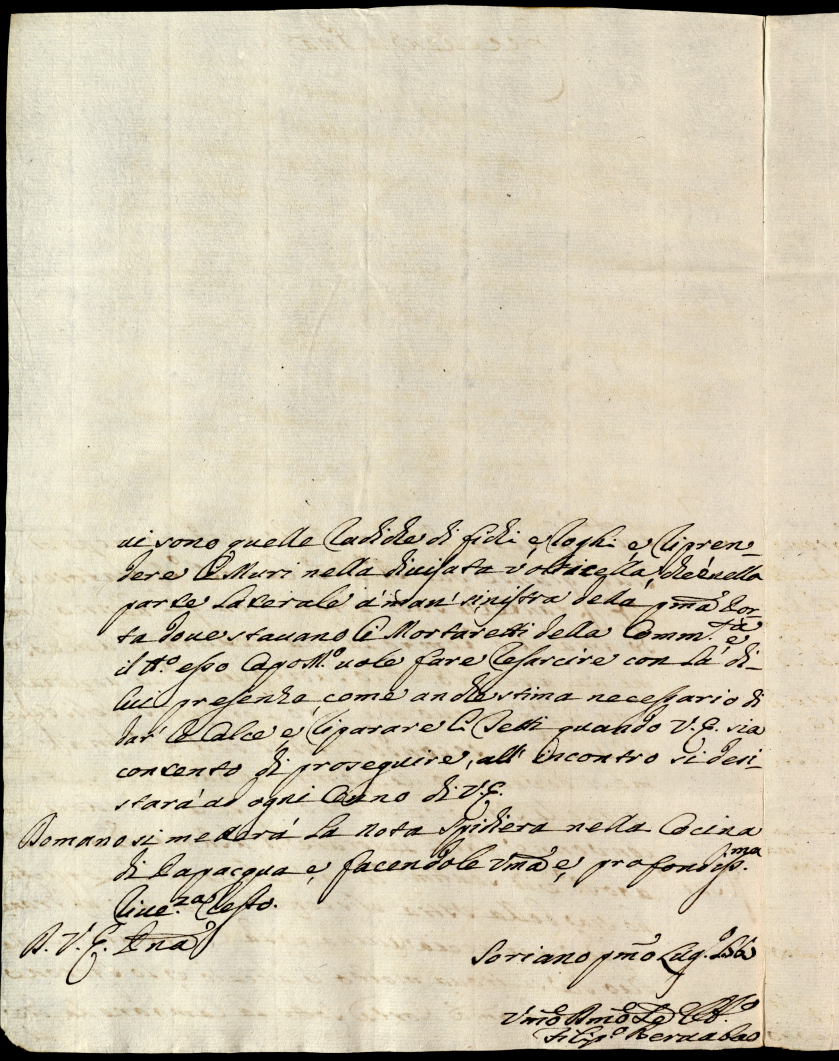 ui sono quelle Radiche di fichi e, Roghi e, Ripren-
dere Le Muri nella divisata Volticella, che è nella
parte Laterale a man' sinistra della pma Por-
ta dove stavano Li Mortaretti della Comm.tà e,
il d.o esso Capo M.o vole fare Resarcire con La di-
lui presenza, come anche stima necessario di
dar' Le Calce, e, Riparare Li Tetti quando V. E. sia
contento di proseguire, all' incontro si desi-
starà ad ogni Cenno di V. E.
Domano si metterà La nota Spidiera nella Cocina
di Capacqua e, facendole Vmã e, profondiss.ma
Rive.za Resto.
D. V. E. Pnã
Soriano pmo Lug.o
Vmo Dmo Se
Filip.o